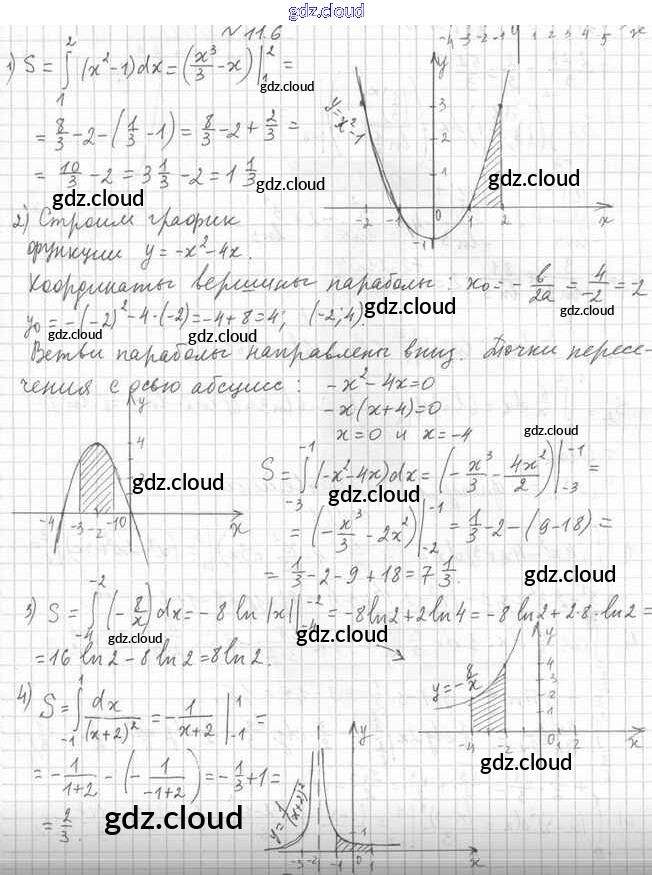 gdz.cloud
N 11.6
-4 -3 -2 -1 1 2 3 4 5 x
1) S = ∫₁² (x²-1)dx = (x³/3 - x)|₁² =
gdz.cloud
= 8/3 - 2 - (1/3 - 1) = 8/3 - 2 + 2/3 =
= 10/3 - 2 = 3 1/3 - 2 = 1 1/3
gdz.cloud
gdz.cloud
y = x² - 1
y
3
2
1
-2 -1 0 1 2 x
-1
gdz.cloud
2) Строим график
функции y = -x² - 4x.
Координаты вершины параболы: x₀ = - b/2a = 4/-2 = -2
y₀ = -(-2)² - 4·(-2) = -4 + 8 = 4; (-2; 4).
gdz.cloud
gdz.cloud
gdz.cloud
gdz.cloud
Ветви параболы направлены вниз. Точки пересе-
чения с осью абсцисс: -x² - 4x = 0
-x(x+4) = 0
x = 0 и x = -4
gdz.cloud
y
4
2
-4 -3 -2 -1 0 x
gdz.cloud
S = ∫₋₃⁻¹ (-x² - 4x)dx = (- x³/3 - 4x²/2)|₋₃⁻¹ =
gdz.cloud
= (- x³/3 - 2x²)|₋₂⁻¹ = 1/3 - 2 - (9 - 18) =
= 1/3 - 2 - 9 + 18 = 7 1/3.
gdz.cloud
3) S = ∫₋₄⁻² (- 8/x)dx = -8 ln|x||₋₄⁻² = -8ln2 + 2ln4 = -8ln2 + 2·8·ln2 =
gdz.cloud
gdz.cloud
= 16 ln2 - 8 ln2 = 8 ln2.
y = - 8/x
y
4
3
2
1
-4 -2 0 1 x
gdz.cloud
4) S = ∫₋₁¹ dx/(x+2)² = - 1/(x+2)|₋₁¹ =
= - 1/(1+2) - (- 1/(-1+2)) = - 1/3 + 1 =
= 2/3.
gdz.cloud
y = 1/(x+2)²
y
1
-3 -2 -1 1 x